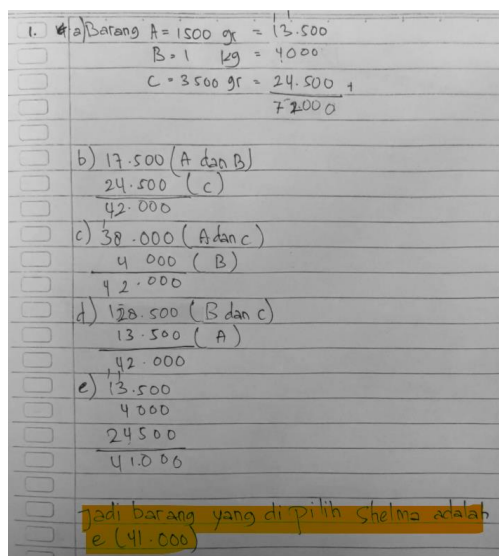 1. a) Barang A = 1500 gr = 13.500
B = 1 kg = 4000
C = 3500 gr = 24.500 +
72000
b) 17.500 (A dan B)
24.500 (C)
42.000
c) 38.000 (A dan C)
4 000 (B)
42.000
d) 128.500 (B dan C)
13.500 (A)
42.000
e) 13.500
4000
24500
41.000
Jadi barang yang di pilih Shelma adalah
e (41.000)